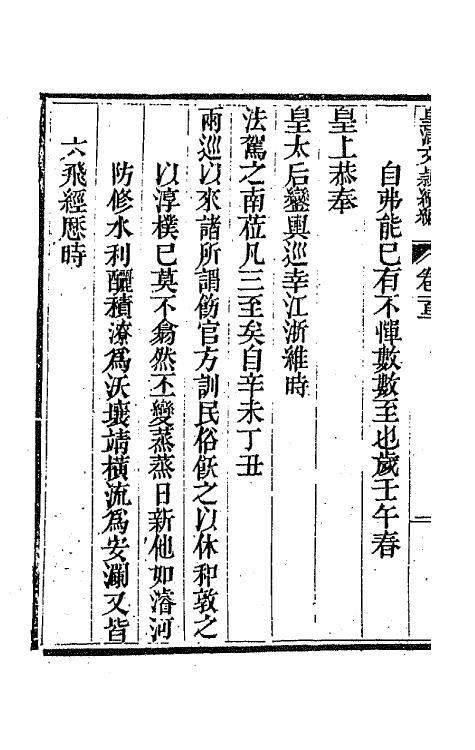 皇清文穎續編 卷首
自弗能已有不憚數數至也歲壬午春
皇上恭奉
皇太后鑾輿巡幸江浙維時
法駕之南蒞凡三至矣自辛未丁丑
兩巡以來諸所謂飭官方訓民俗飫之以休和敦之
以淳樸已莫不翕然丕變蒸蒸日新他如濬河
防修水利釃積潦爲沃壤靖橫流爲安瀾又皆
六飛經歴時